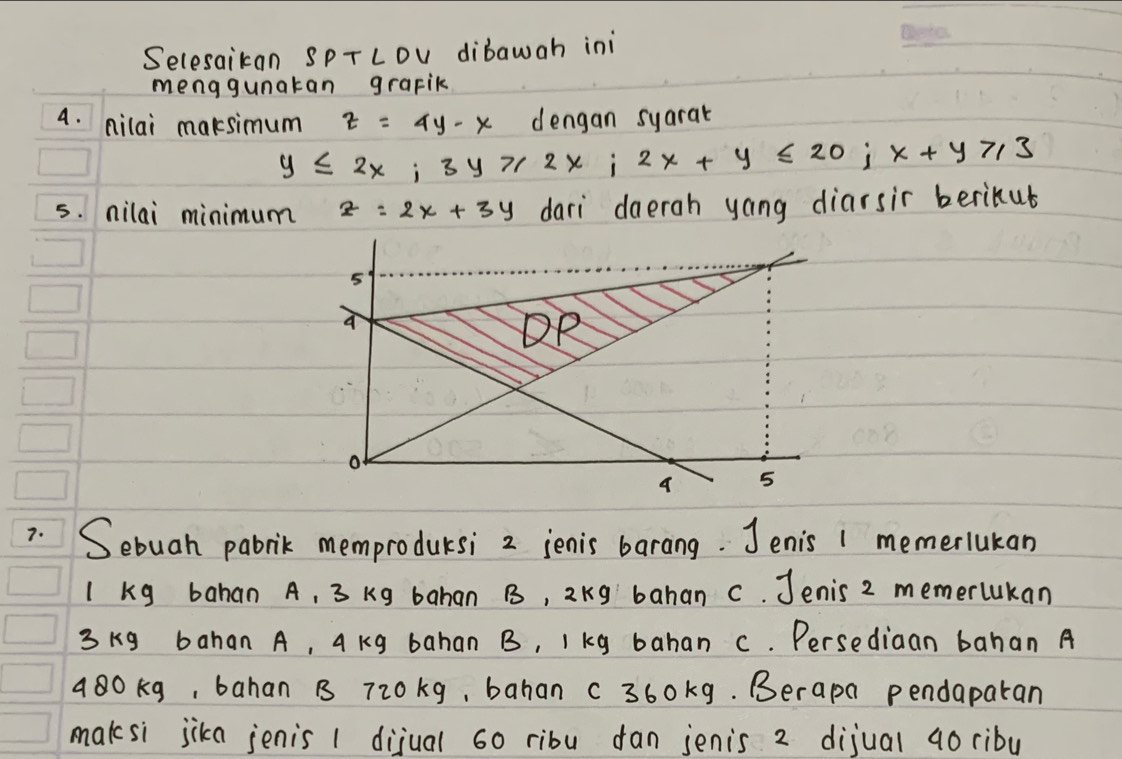 Selesaikan SPTLDV dibawah ini
menggunakan grafik
4. nilai maksimum z = 4y - x dengan syarat
y ≤ 2x ; 3y ≥ 2x ; 2x + y ≤ 20 ; x + y ≥ 3
5. nilai minimum z = 2x + 3y dari daerah yang diarsir berikut
5
4
DP
0
4 5
7. Sebuah pabrik memproduksi 2 jenis barang. Jenis 1 memerlukan
1 kg bahan A, 3 kg bahan B, 2kg bahan C. Jenis 2 memerlukan
3 kg bahan A, 4 kg bahan B, 1 kg bahan C. Persediaan bahan A
480 kg, bahan B 720 kg, bahan C 360 kg. Berapa pendapatan
maksi jika jenis 1 dijual 60 ribu dan jenis 2 dijual 40 ribu